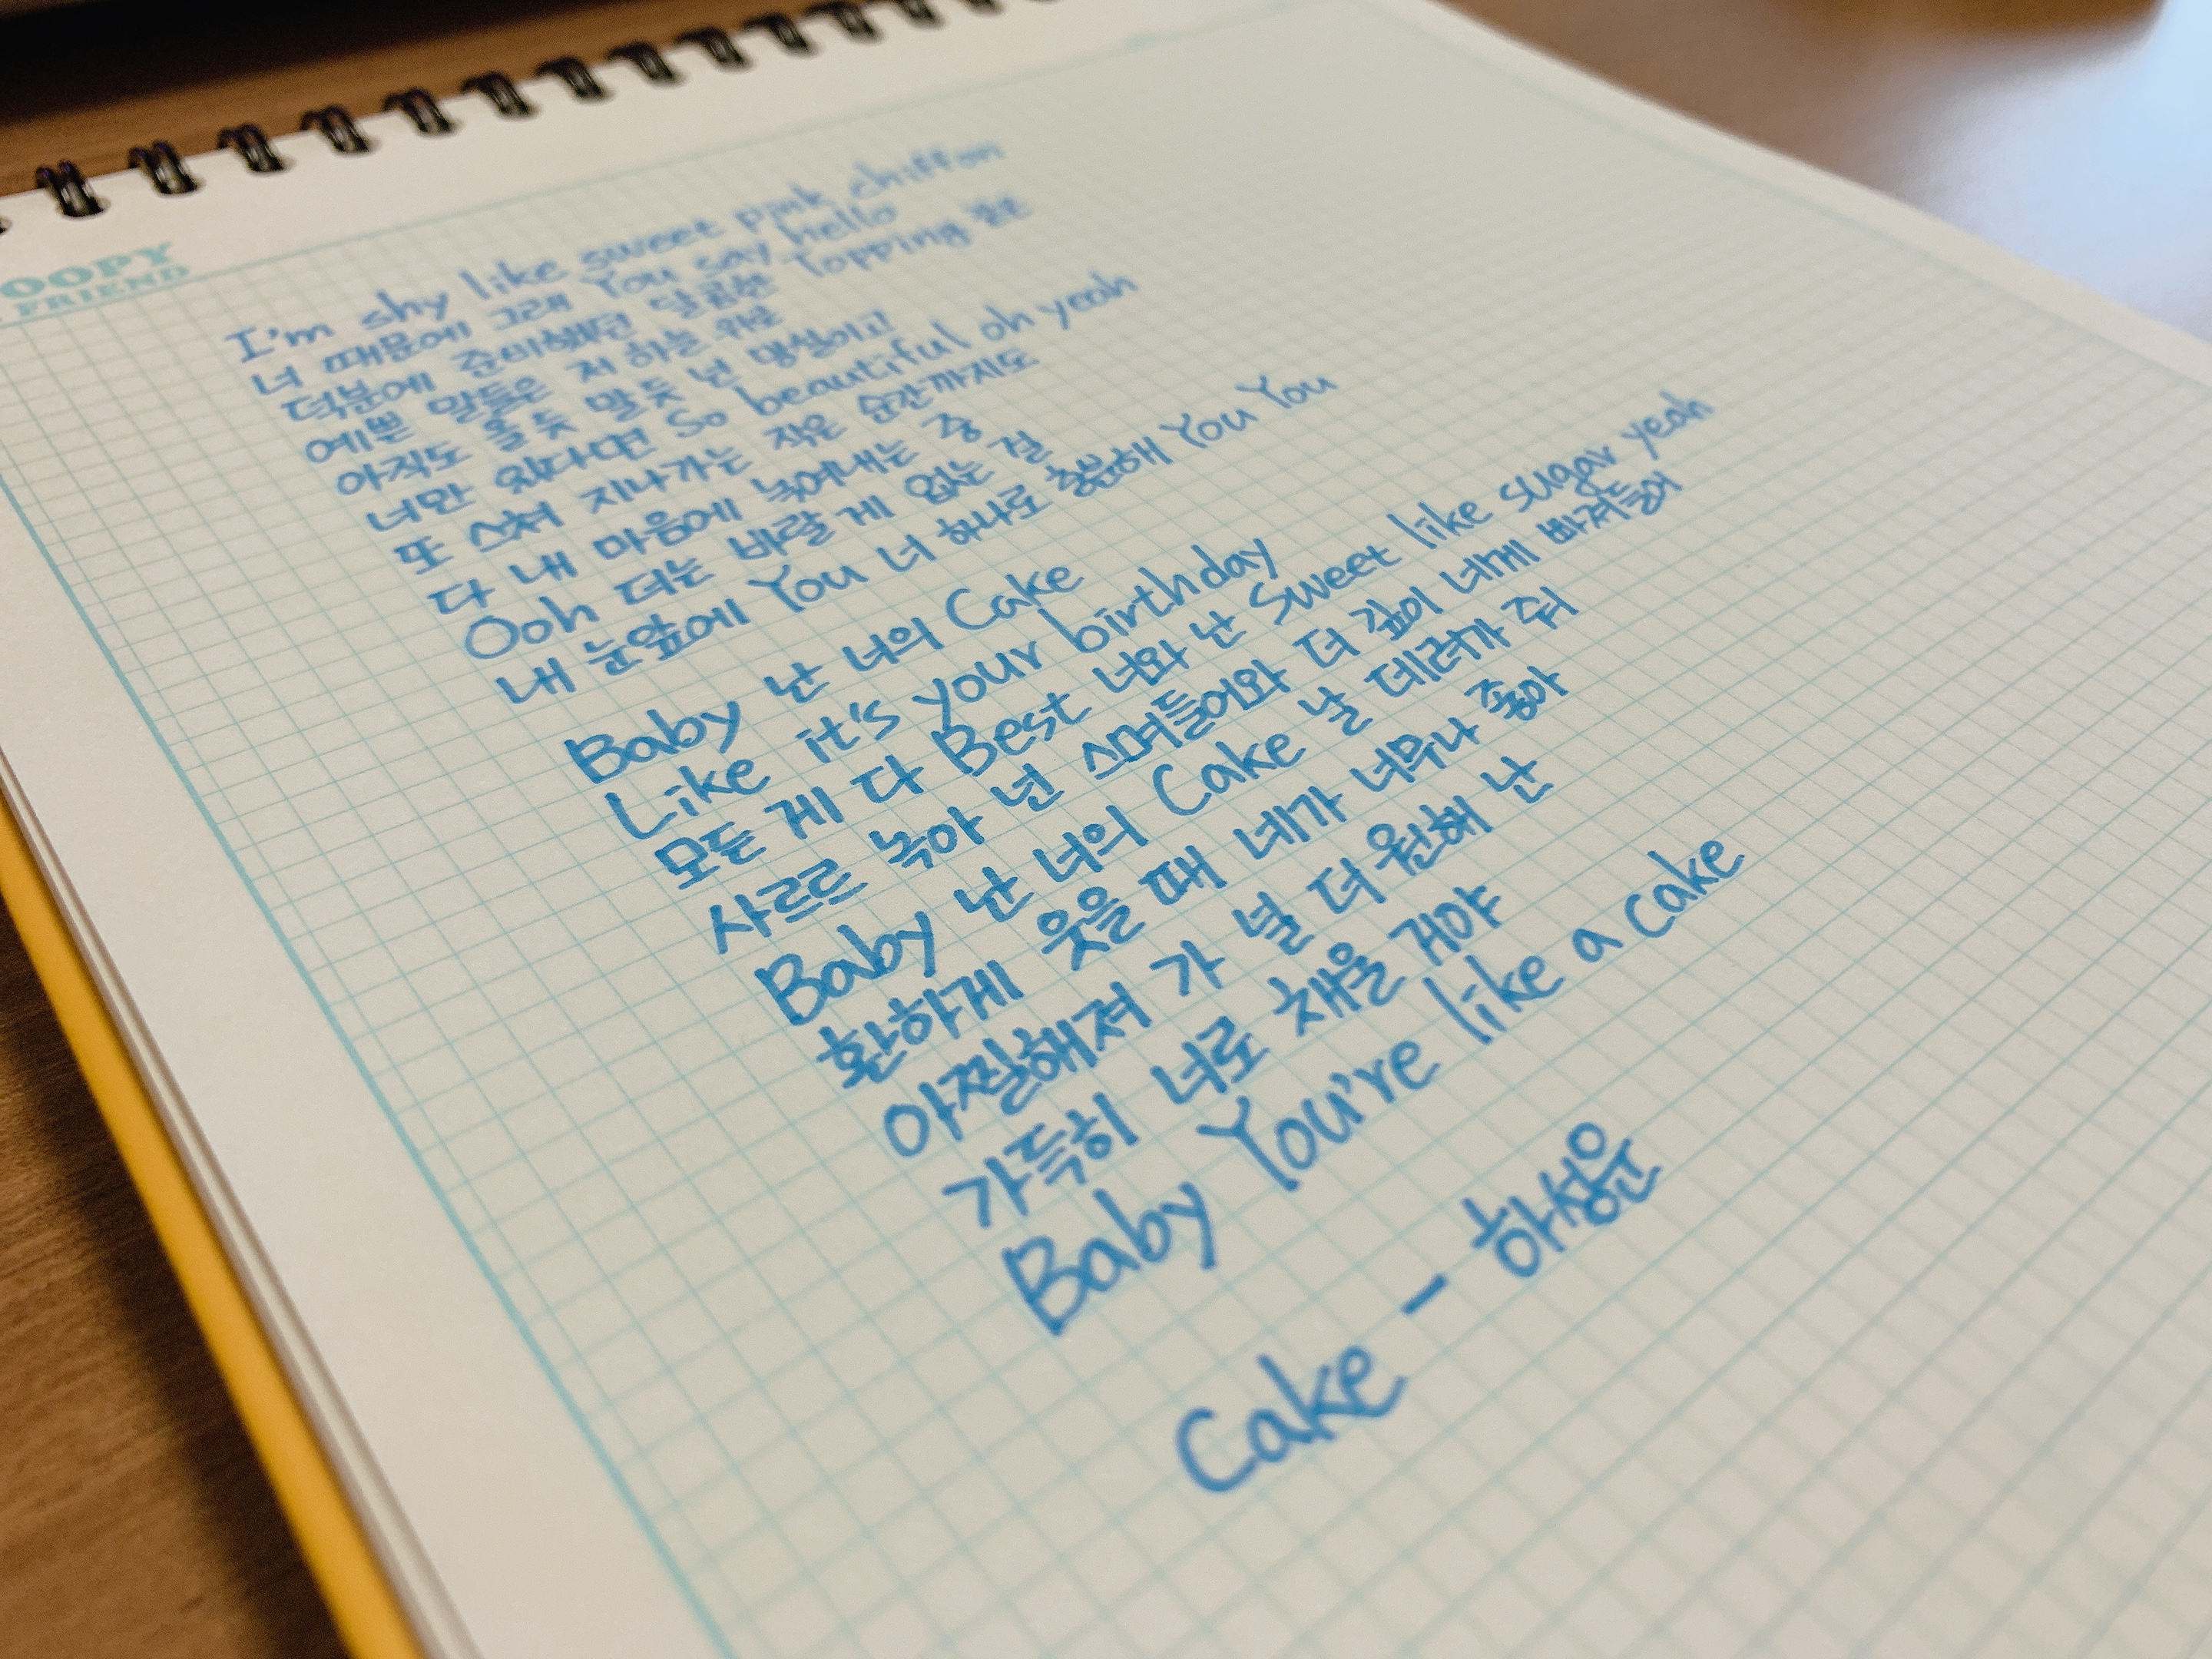 OOPY
FRIEND
I'm shy like sweet pink chiffon
너 때문에 그래 You say hello
덕분에 준비했던 달콤한 Topping 같은
예쁜 말들은 저 하늘 위로
아직도 올 듯 말 듯 넌 망설이고
너만 있다면 So beautiful oh yeah
또 스쳐 지나가는 작은 순간까지도
다 내 마음에 녹여내는 중
Ooh 더는 바랄 게 없는 걸
내 눈앞에 You 너 하나로 충분해 You You
Baby 난 너의 Cake
Like it's your birthday
모든 게 다 Best 너와 난 Sweet like sugar yeah
사르르 녹아 넌 스며들어와 더 깊이 네게 빠져들어
Baby 난 너의 Cake 날 데려가 줘
환하게 웃을 때 네가 너무나 좋아
아찔해져 가 널 더 원해 난
가득히 너로 채울 거야
Baby You're like a cake
Cake - 하성운